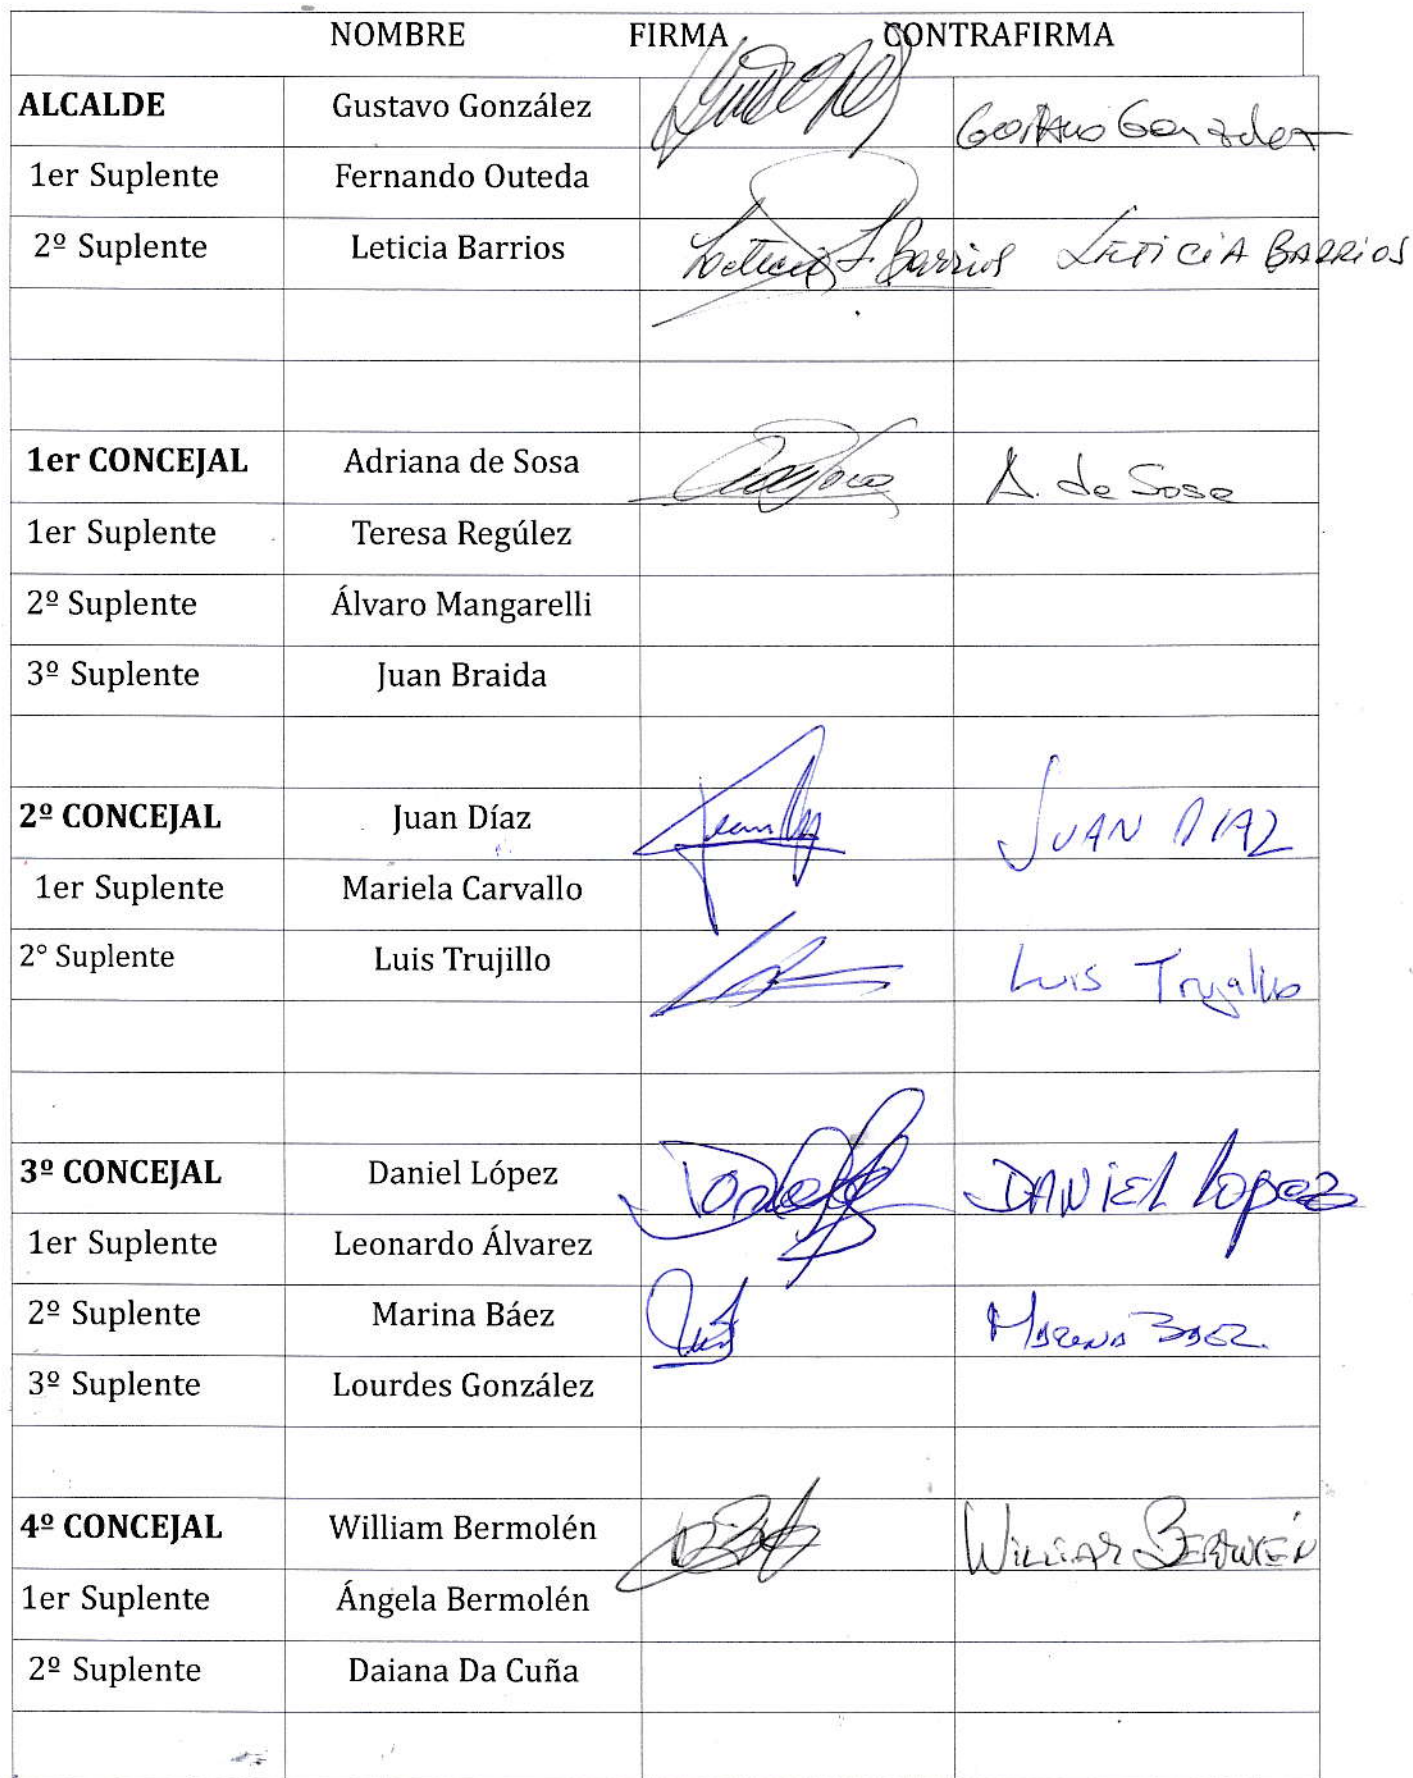 NOMBRE FIRMA CONTRAFIRMA
ALCALDE Gustavo González Gustavo Gonzalez
1er Suplente Fernando Outeda
2º Suplente Leticia Barrios Leticia F. Barrios LETICIA BARRIOS
1er CONCEJAL Adriana de Sosa A. de Sosa
1er Suplente Teresa Regúlez
2º Suplente Álvaro Mangarelli
3º Suplente Juan Braida
2º CONCEJAL Juan Díaz JUAN DIAZ
1er Suplente Mariela Carvallo
2° Suplente Luis Trujillo Luis Trujillo
3º CONCEJAL Daniel López DANIEL Lopez
1er Suplente Leonardo Álvarez
2º Suplente Marina Báez Marina Baez.
3º Suplente Lourdes González
4º CONCEJAL William Bermolén WILLIAM BERMOLÉN
1er Suplente Ángela Bermolén
2º Suplente Daiana Da Cuña